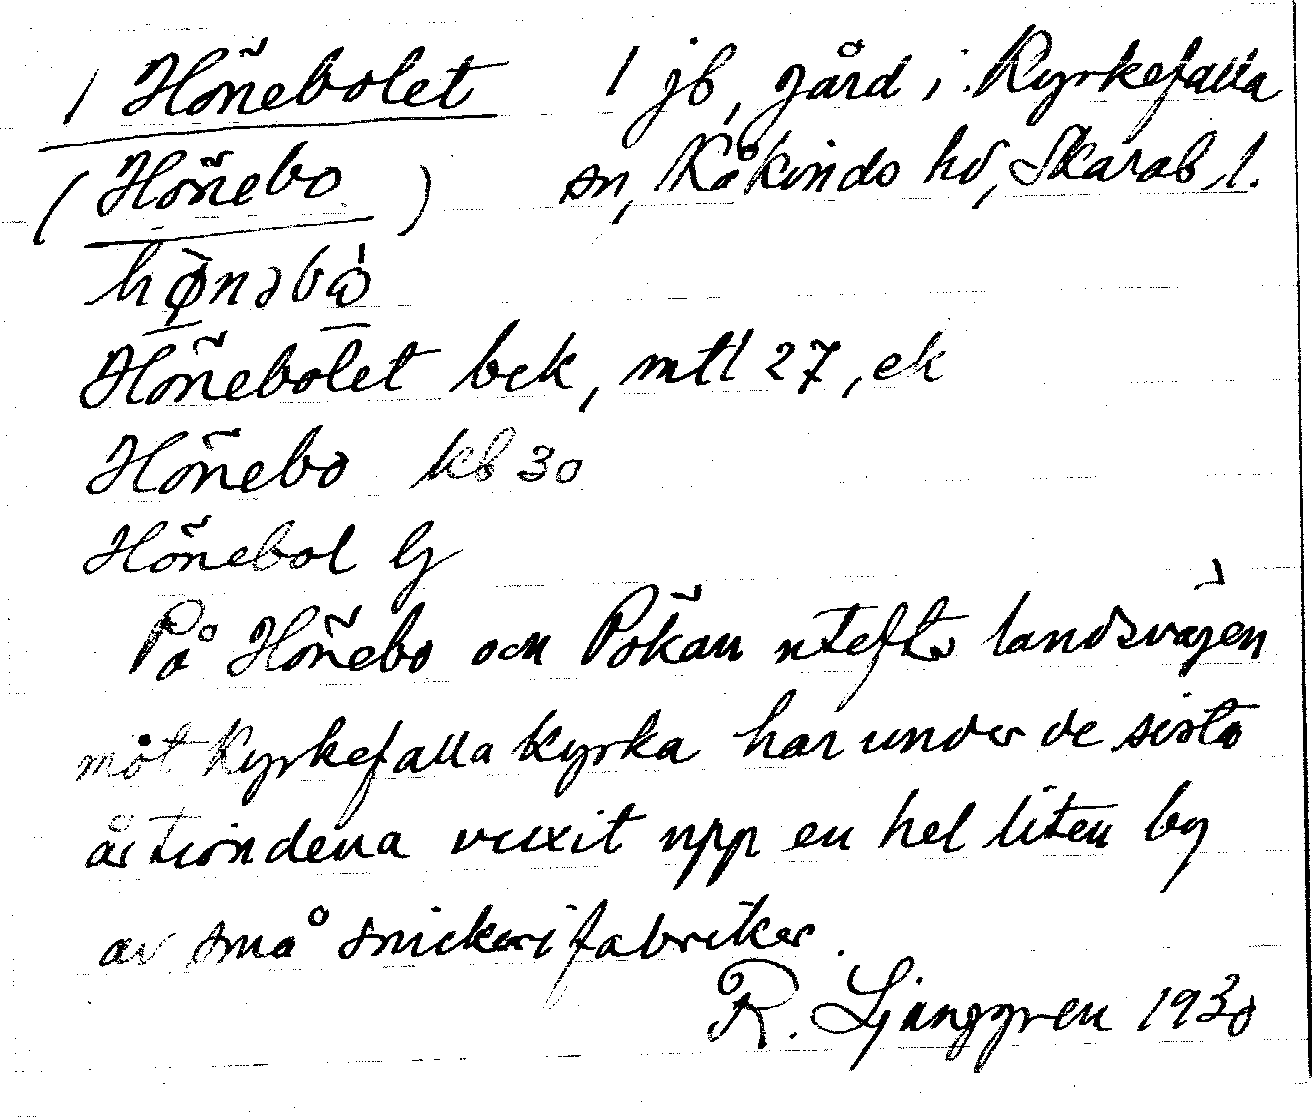 1 Hönebolet 1 jb, gård i Kyrkefalla
(Hönebo) sn, Kåkinds hd, Skarab. l.
Hönebolet bek, mtl 27, ek
Hönebo kb 30
Hönebol Lj
På Hönebo och Pökan utefter landsvägen
möt Kyrkefalla kyrka har under de sista
årtiondena vuxit upp en hel liten by
av små snickerifabriker.
R. Ljunggren 1930